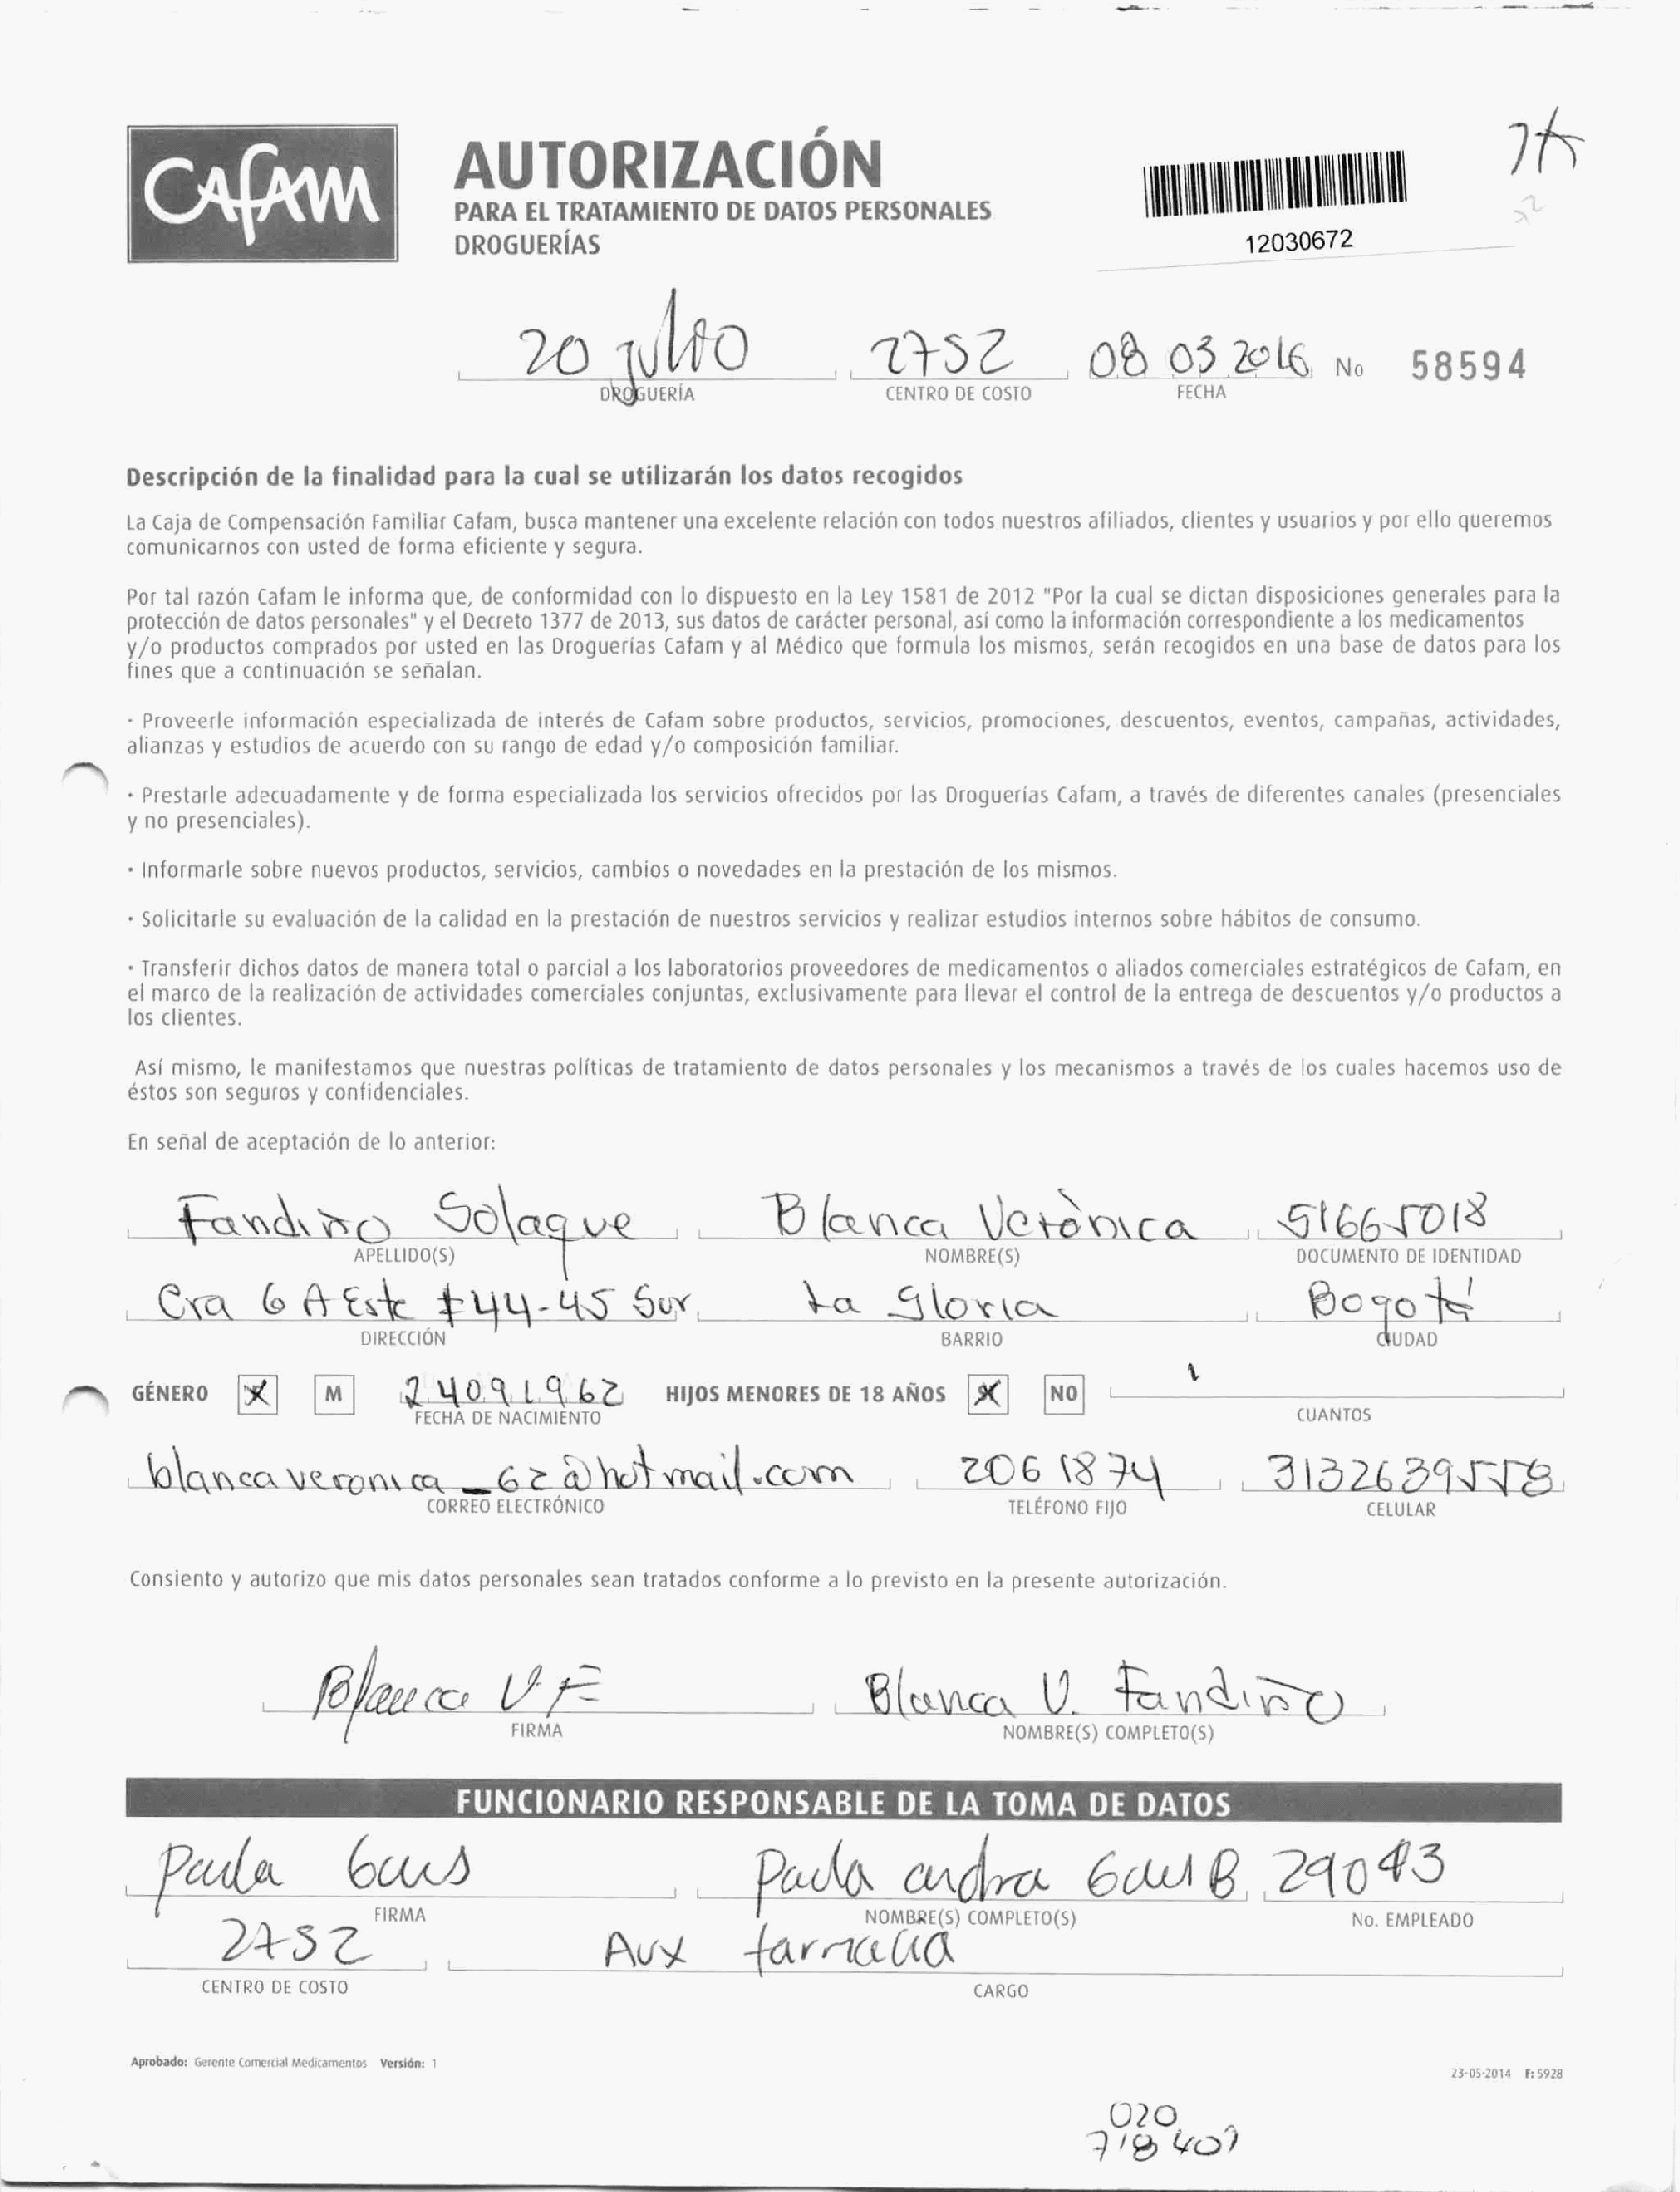 CAFAM
AUTORIZACIÓN
PARA EL TRATAMIENTO DE DATOS PERSONALES
DROGUERÍAS
12030672
20 julio 2752 08 03 2016 No 58594
DROGUERÍA CENTRO DE COSTO FECHA
Descripción de la finalidad para la cual se utilizarán los datos recogidos
La Caja de Compensación Familiar Cafam, busca mantener una excelente relación con todos nuestros afiliados, clientes y usuarios y por ello queremos
comunicarnos con usted de forma eficiente y segura.
Por tal razón Cafam le informa que, de conformidad con lo dispuesto en la Ley 1581 de 2012 "Por la cual se dictan disposiciones generales para la
protección de datos personales" y el Decreto 1377 de 2013, sus datos de carácter personal, así como la información correspondiente a los medicamentos
y/o productos comprados por usted en las Droguerías Cafam y al Médico que formula los mismos, serán recogidos en una base de datos para los
fines que a continuación se señalan.
· Proveerle información especializada de interés de Cafam sobre productos, servicios, promociones, descuentos, eventos, campañas, actividades,
alianzas y estudios de acuerdo con su rango de edad y/o composición familiar.
· Prestarle adecuadamente y de forma especializada los servicios ofrecidos por las Droguerías Cafam, a través de diferentes canales (presenciales
y no presenciales).
· Informarle sobre nuevos productos, servicios, cambios o novedades en la prestación de los mismos.
· Solicitarle su evaluación de la calidad en la prestación de nuestros servicios y realizar estudios internos sobre hábitos de consumo.
· Transferir dichos datos de manera total o parcial a los laboratorios proveedores de medicamentos o aliados comerciales estratégicos de Cafam, en
el marco de la realización de actividades comerciales conjuntas, exclusivamente para llevar el control de la entrega de descuentos y/o productos a
los clientes.
Así mismo, le manifestamos que nuestras políticas de tratamiento de datos personales y los mecanismos a través de los cuales hacemos uso de
éstos son seguros y confidenciales.
En señal de aceptación de lo anterior:
Fandiño Solaque Blanca Verònica 51665018
APELLIDO(S) NOMBRE(S) DOCUMENTO DE IDENTIDAD
Cra 6 A Este #44-45 Sur La gloria Bogotá
DIRECCIÓN BARRIO CIUDAD
GÉNERO X M 24091962 HIJOS MENORES DE 18 AÑOS X NO 1
FECHA DE NACIMIENTO CUANTOS
blancaveronica_62@hotmail.com 2061874 3132639558
CORREO ELECTRÓNICO TELÉFONO FIJO CELULAR
Consiento y autorizo que mis datos personales sean tratados conforme a lo previsto en la presente autorización.
Blanca V F Blanca V. Fandiño
FIRMA NOMBRE(S) COMPLETO(S)
FUNCIONARIO RESPONSABLE DE LA TOMA DE DATOS
Paula Paula andra B 29043
FIRMA NOMBRE(S) COMPLETO(S) No. EMPLEADO
2752 Aux farmacia
CENTRO DE COSTO CARGO
Aprobado: Gerente Comercial Medicamentos Versión: 1
23-05-2014 F: 5928
020
718401